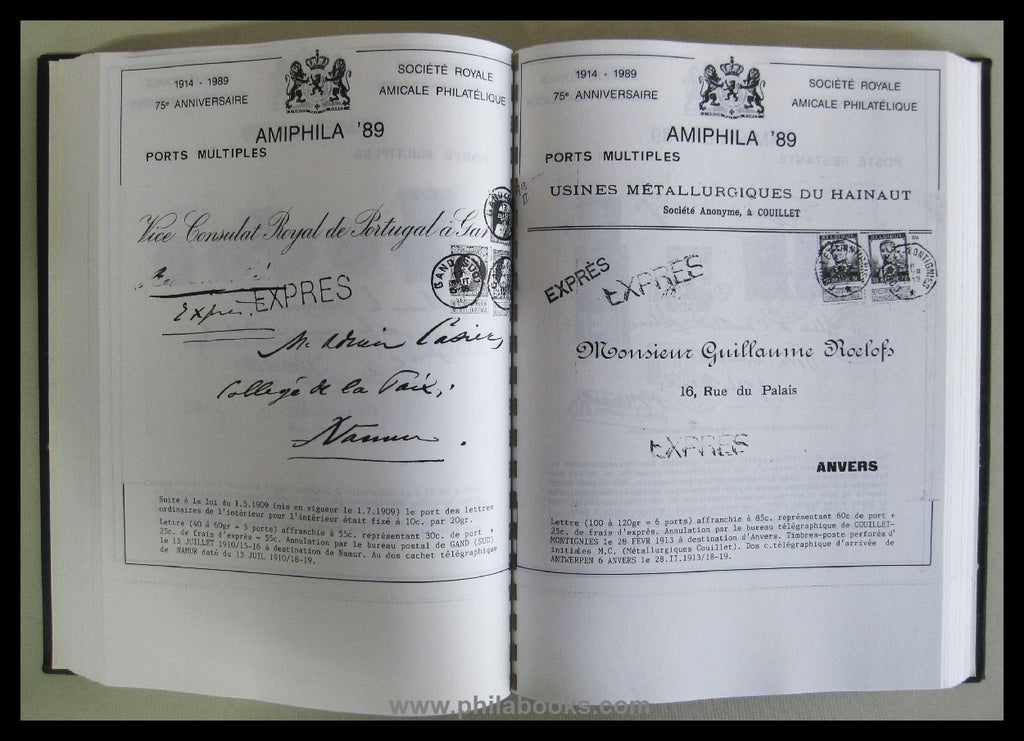 1914 - 1989
75e ANNIVERSAIRE
SOCIÉTÉ ROYALE
AMICALE PHILATÉLIQUE
AMIPHILA '89
PORTS MULTIPLES
Vice Consulat Royal de Portugal à Gan
Exprès
EXPRES
GAND (SUD)
Mr Adrien Casier,
Collège de la Paix,
Namur.
Suite à la loi du 1.5.1909 (mis en vigueur le 1.7.1909) le port des lettres
ordinaires de l'intérieur pour l'intérieur était fixé à 10c. par 20gr.
Lettre (40 à 60gr = 3 ports) affranchie à 55c. représentant 30c. de port +
25c. de frais d'exprès = 55c. Annulation par le bureau postal de GAND (SUD)
le 13 JUILLET 1910/15-16 à destination de Namur. Au dos cachet télégraphique
de NAMUR daté du 13 JUIL 1910/18-19.
1914 - 1989
75e ANNIVERSAIRE
SOCIÉTÉ ROYALE
AMICALE PHILATÉLIQUE
AMIPHILA '89
PORTS MULTIPLES
USINES MÉTALLURGIQUES DU HAINAUT
Société Anonyme, à COUILLET
EXPRÈS
EXPRES
Monsieur Guillaume Roelofs
16, Rue du Palais
EXPRES
ANVERS
Lettre (100 à 120gr = 6 ports) affranchie à 85c. représentant 60c de port +
25c. de frais d'exprès. Annulation par le bureau télégraphique de COUILLET-
MONTIGNIES le 28 FEVR 1913 à destination d'Anvers. Timbres-poste perforés d'
initiales M.C. (Métallurgiques Couillet). Dos c.télégraphique d'arrivée de
ANTWERPEN 6 ANVERS le 28.II.1913/18-19.
www.philabooks.com